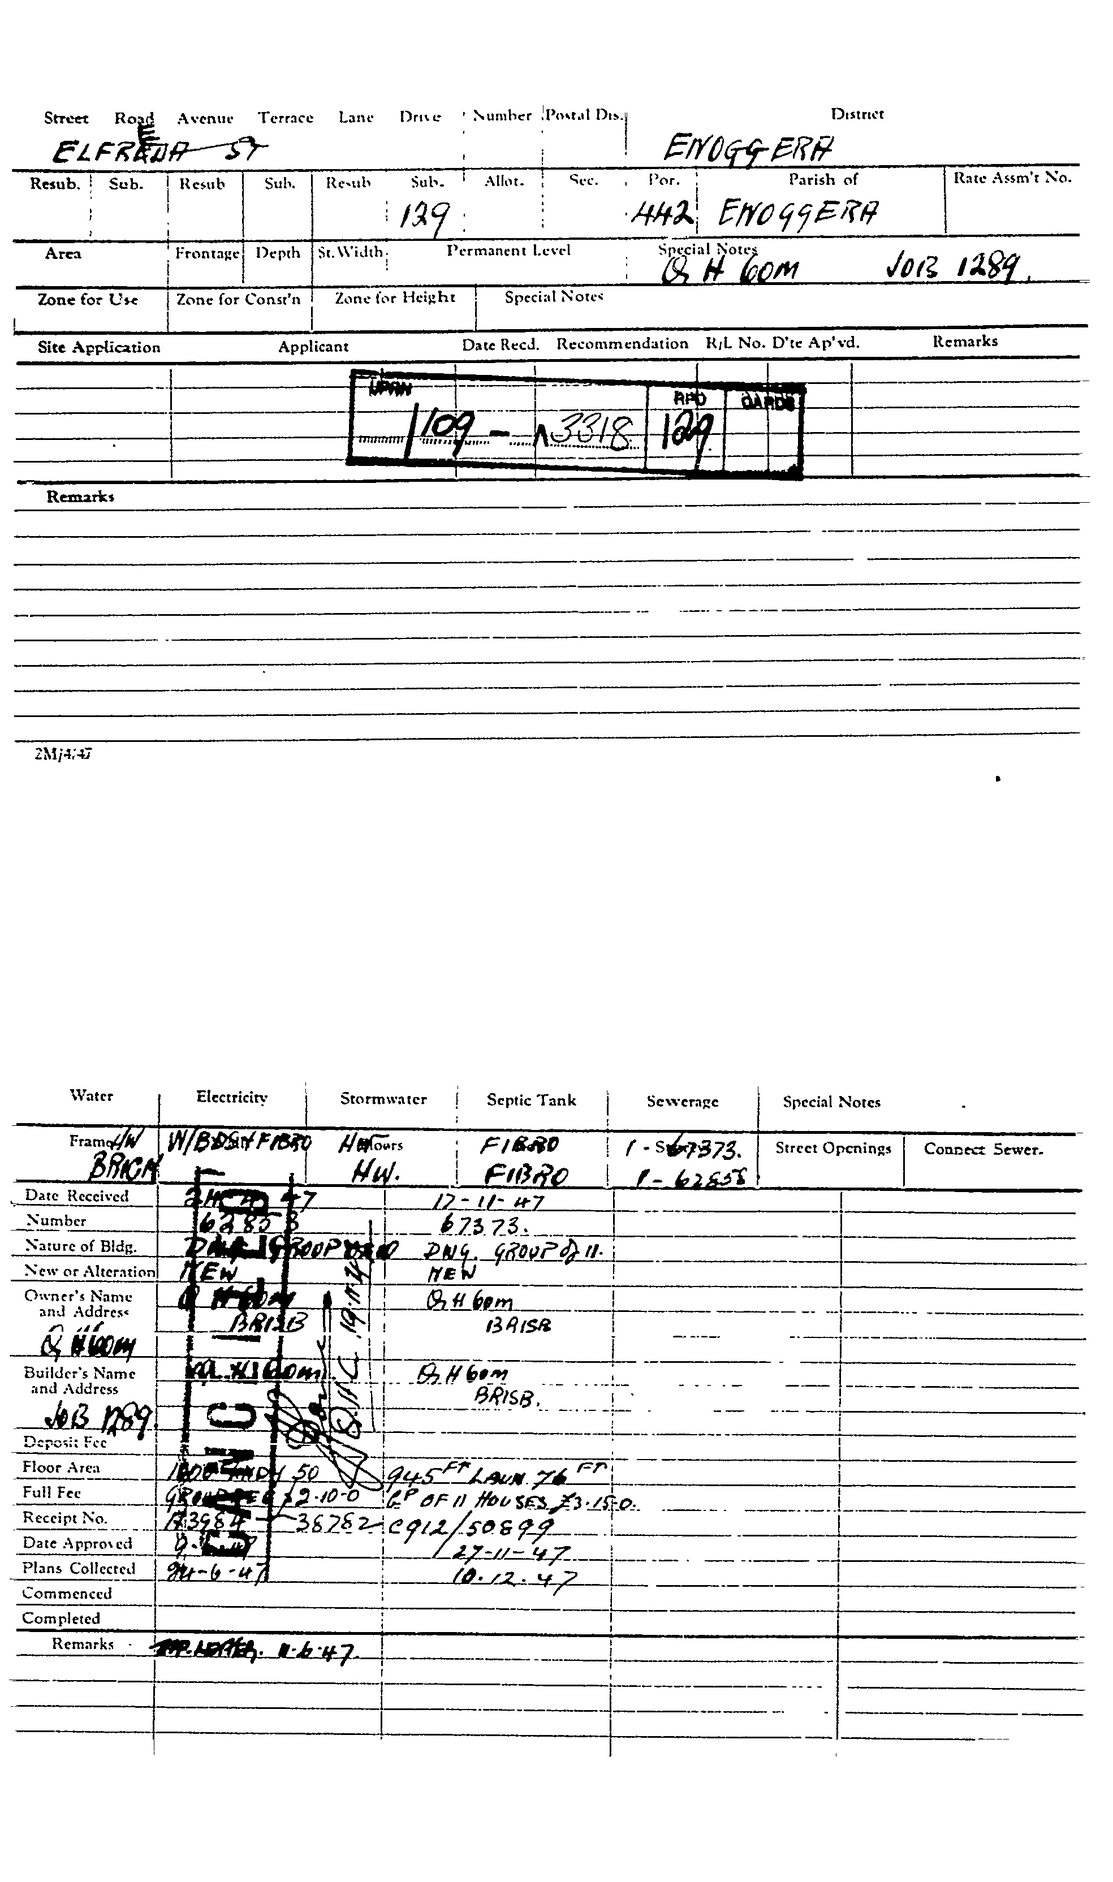 Street Road Avenue Terrace Lane Drive Number Postal Dis. District
ELFREDA ST ENOGGERA
Resub. Sub. Resub Sub. Resub Sub. Allot. Sec. Por. Parish of Rate Assm't No.
129 442 ENOGGERA
Area Frontage Depth St. Width Permanent Level Special Notes
Q H Com JOB 1289.
Zone for Use Zone for Const'n Zone for Height Special Notes
Site Application Applicant Date Recd. Recommendation R/L No. D'te Ap'vd. Remarks
UPRN RPD CARDS
109 - 3318 129
Remarks
2M/4/47
Water Electricity Stormwater Septic Tank Sewerage Special Notes
Frame H/W W/BDS FIBRO HW FIBRO 1 - 67373. Street Openings Connect Sewer.
BRICK HW. FIBRO 1 - 62858
Date Received 47 17-11-47
Number 62858 67373.
Nature of Bldg. GROUP DWG. GROUP of 11.
New or Alteration NEW NEW
Owner's Name Q H Com Q H Com
and Address BRISB BRISB
Q H Com
Builder's Name Q. H. Com. Q H Com
and Address BRISB.
JOB 1289.
Deposit Fee
Floor Area 50 945 FT LAUN. 76 FT
Full Fee 2-10-0 GP OF 11 HOUSES £3-15-0.
Receipt No. 38782 C912/50899
Date Approved 27-11-47
Plans Collected 24-6-47 10.12.47
Commenced
Completed
Remarks 11-6-47.